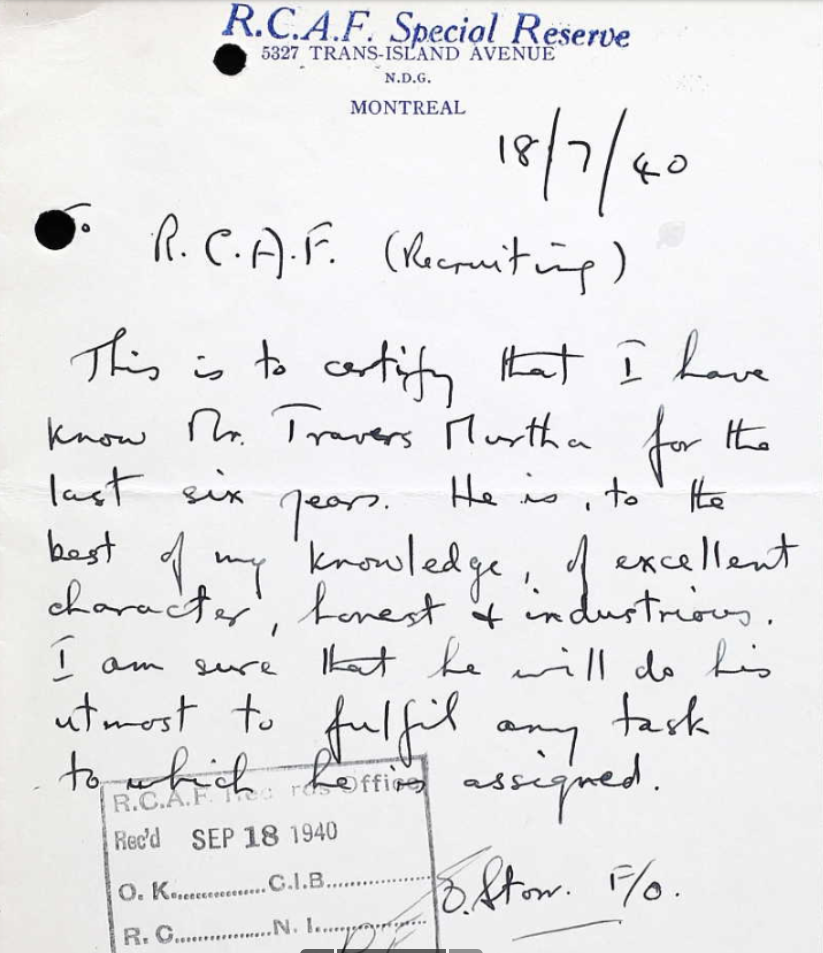 R.C.A.F. Special Reserve
5327 TRANS-ISLAND AVENUE
N.D.G.
MONTREAL
18/7/40
To
R.C.A.F. (Recruiting)
This is to certify that I have
know Mr. Travers Murtha for the
last six years. He is, to the
best of my knowledge, of excellent
character, honest & industrious.
I am sure that he will do his
utmost to fulfil any task
to which he is assigned.
R.C.A.F. Records Office
Rec'd SEP 18 1940
O. K................C.I.B.................
R. C.................N. I.................
Stow. F/O.